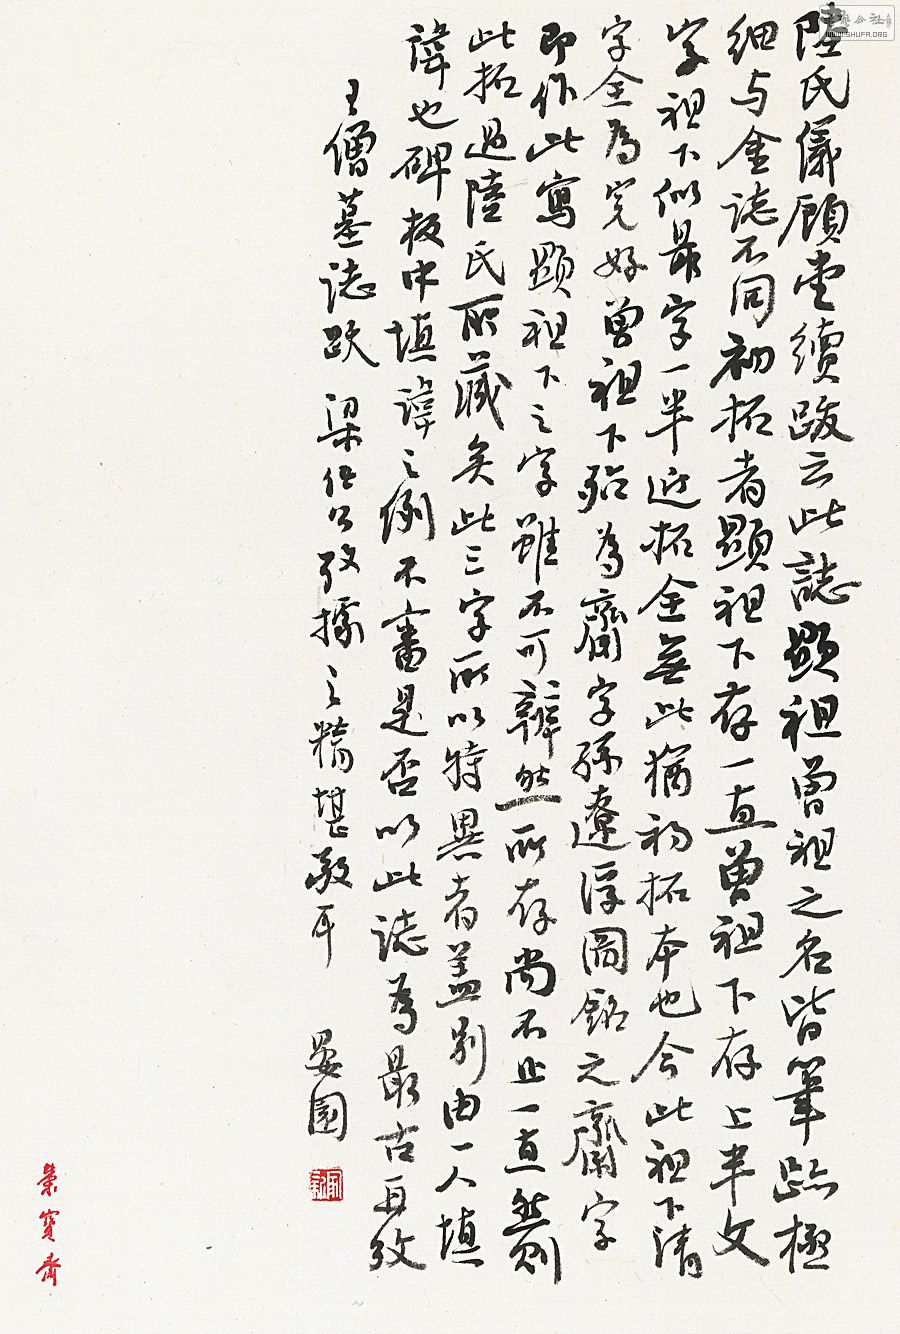 陸氏儀顧堂續跋云此誌顯祖曾祖之名皆筆跡極
細与全誌不同初拓者顯祖下存一直曾祖下存上半文
字祖下似最字一半近拓全無此猶初拓本也今此祖下清
字全為完好曾祖下殆為齋字孫遼浮圖銘之齋字
即作此寫顯祖下之字雖不可辨然所存尚不止一直然則
此拓過陸氏所藏矣此三字所以特異者蓋別由一人填
諱也碑板中填諱之例不審是否以此誌為最古再攷
王僧墓誌跋 梁任公攷據之精堪敬耳 晏園
榮寶齋
書法公社
WWW.SHUFA.ORG